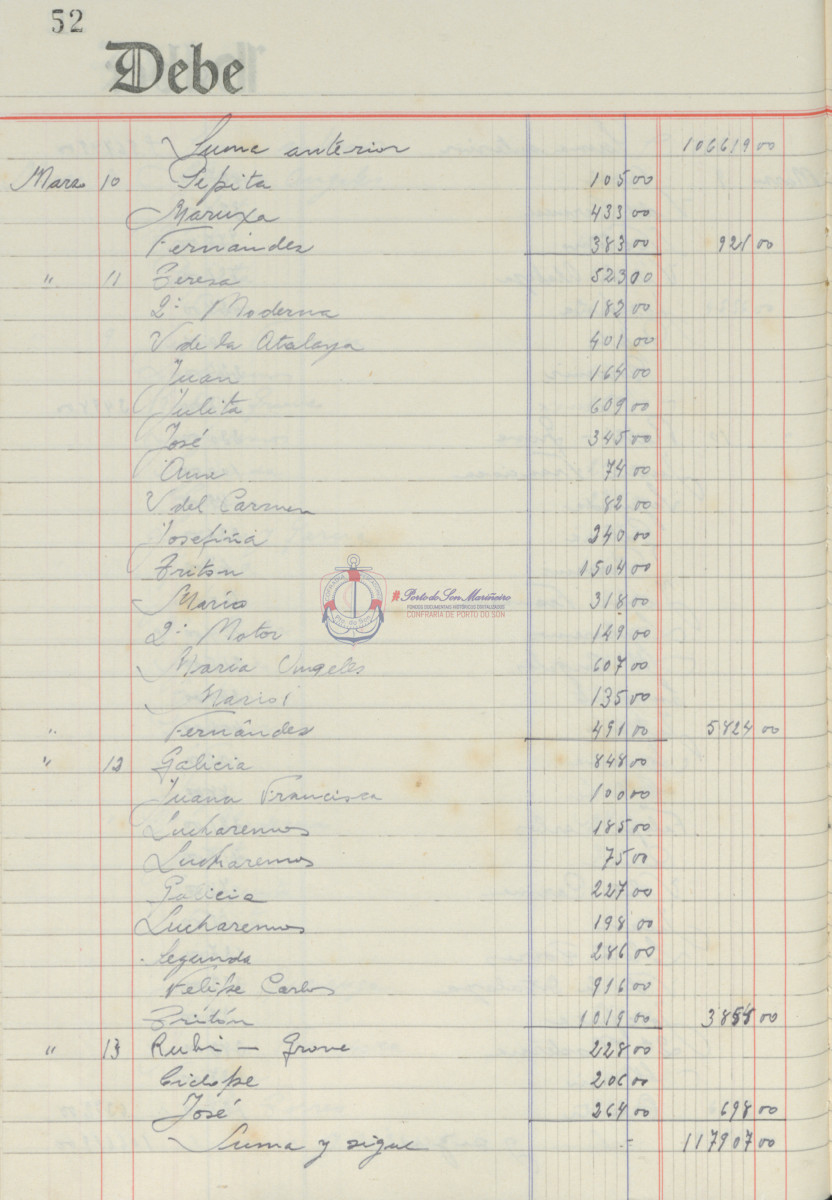 52
Debe
Suma anterior 106619 00
Marzo 10 Pepita 105 00
Maruxa 433 00
Fernández 383 00 921 00
" 11 Teresa 523 00
2ª Moderna 182 00
V de la Atalaya 401 00
Juan 164 00
Julita 609 00
José 345 00
Ana 74 00
V del Carmen 82 00
Josefina 240 00
Triton 1504 00
María 318 00
2ª Motor 149 00
Maria Angeles 607 00
Mari 135 00
" Fernández 491 00 5824 00
" 12 Galicia 848 00
Juana Francisca 100 00
Lucharemos 185 00
Lucharemos 75 00
Galicia 227 00
Lucharemos 198 00
Segunda 286 00
Felipe Carlos 916 00
Tritón 1019 00 3854 00
" 13 Rubi — Grove 228 00
Ciclope 206 00
José 264 00 698 00
Suma y sigue 117907 00
CONFRARIA
Por. do Son
#PortodoSonMariñeiro
FONDOS DOCUMENTAIS HISTÓRICOS DIXITALIZADOS
CONFRARÍA DE PORTO DO SON